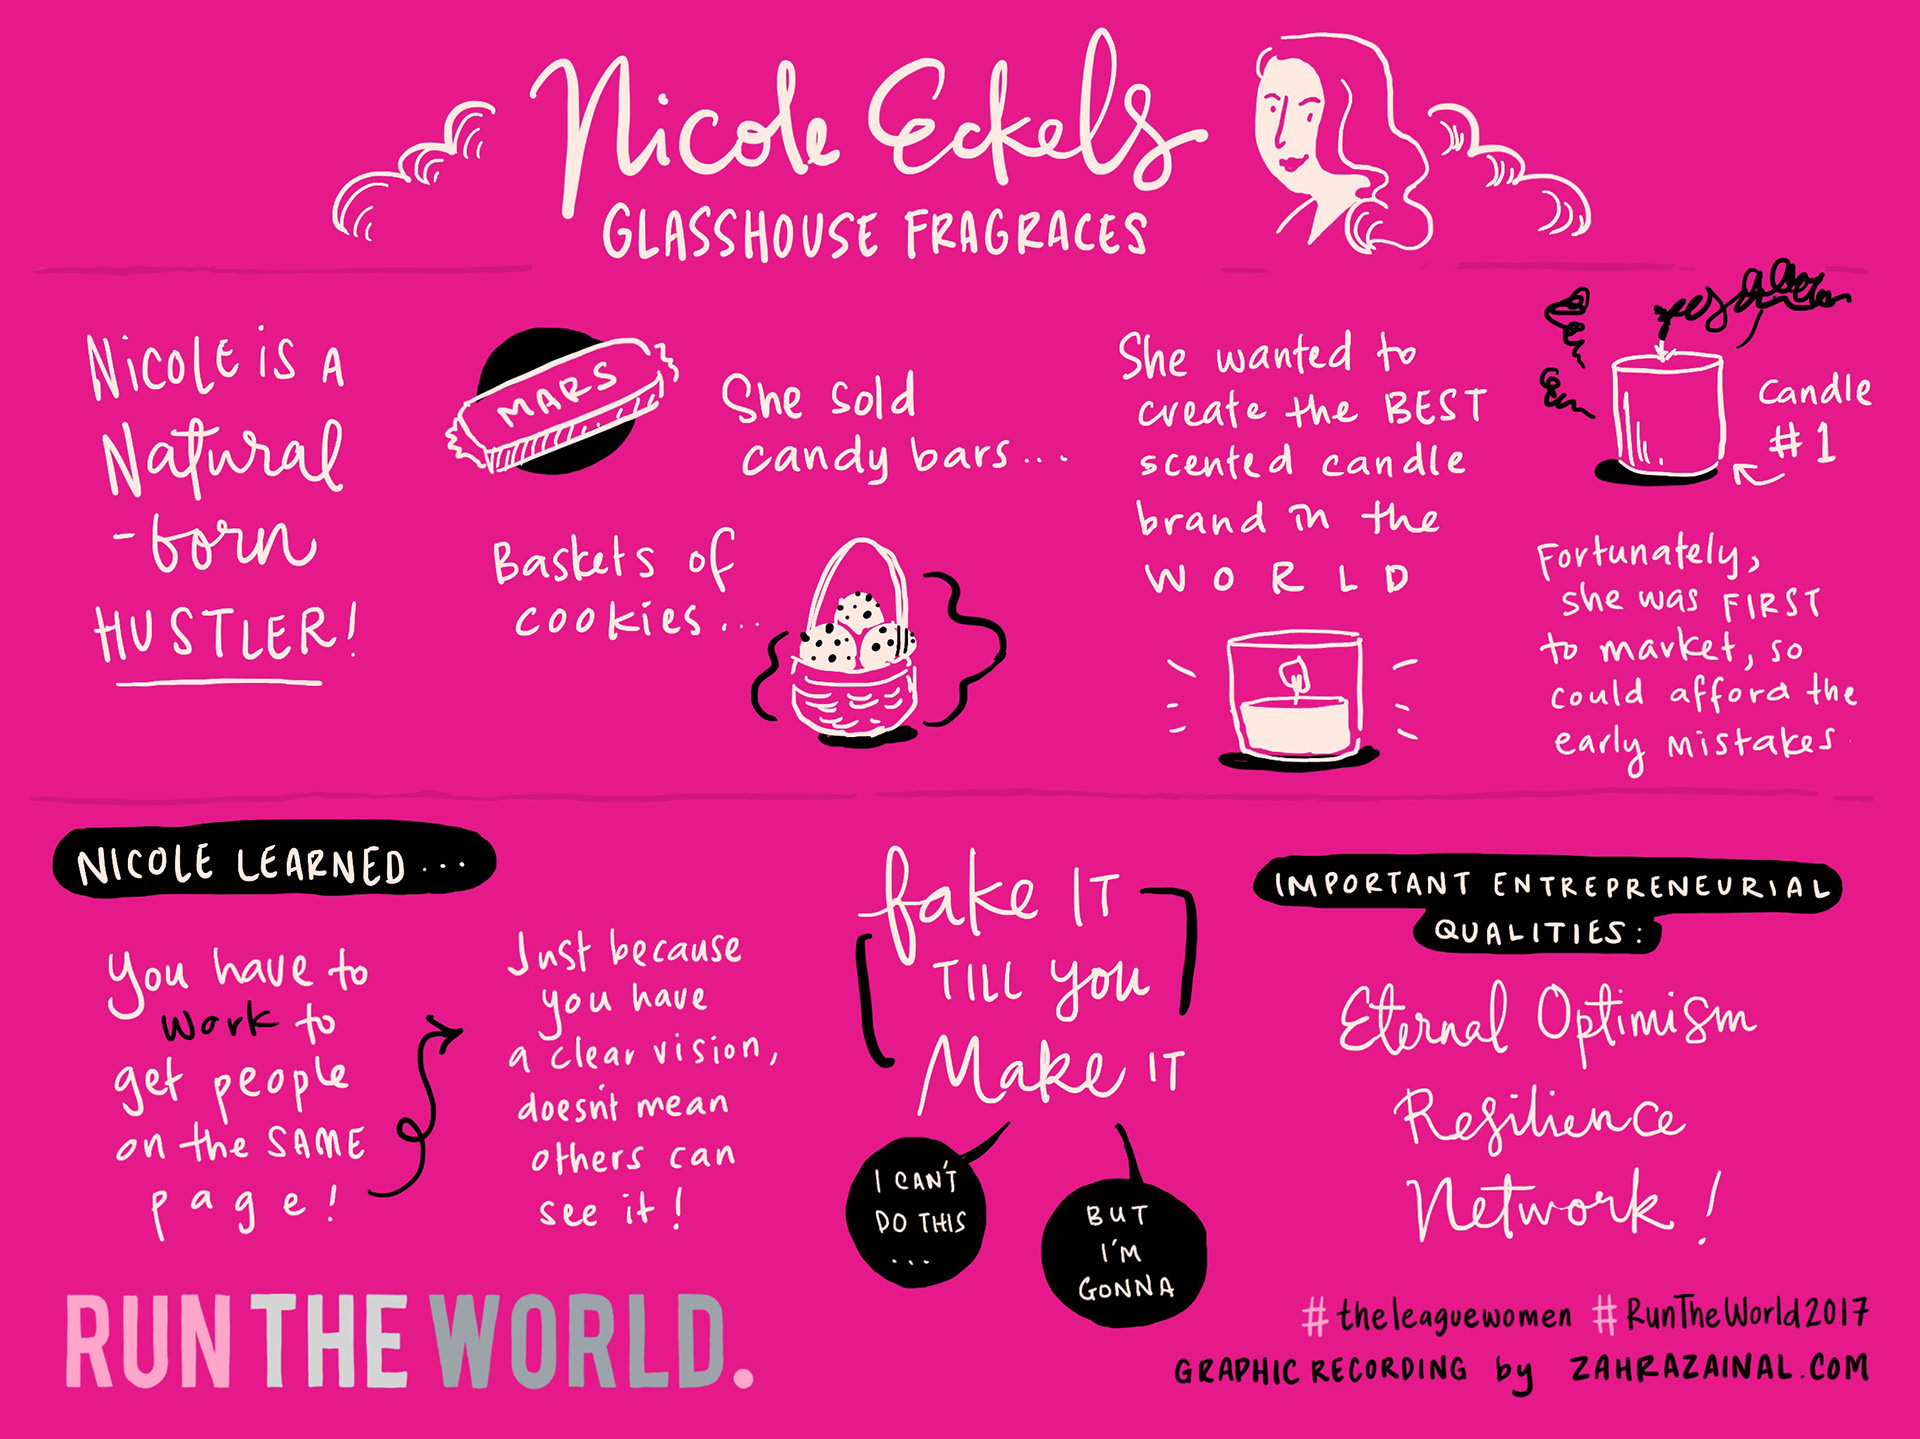 Nicole Eckels
GLASSHOUSE FRAGRACES
NICOLE IS A
Natural
-born
HUSTLER!
MARS
She sold
candy bars...
Baskets of
cookies...
She wanted to
create the BEST
scented candle
brand in the
WORLD
Candle
#1
Fortunately,
she was FIRST
to market, so
could afford the
early mistakes
NICOLE LEARNED...
You have to
work to
get people
on the SAME
page!
Just because
you have
a clear vision,
doesn't mean
others can
see it!
fake IT
TILL you
Make IT
I CAN'T
DO THIS
...
BUT
I'M
GONNA
IMPORTANT ENTREPRENEURIAL
QUALITIES:
Eternal Optimism
Resilience
Network!
RUN THE WORLD.
#theleaguewomen #RunTheWorld2017
GRAPHIC RECORDING by ZAHRAZAINAL.COM